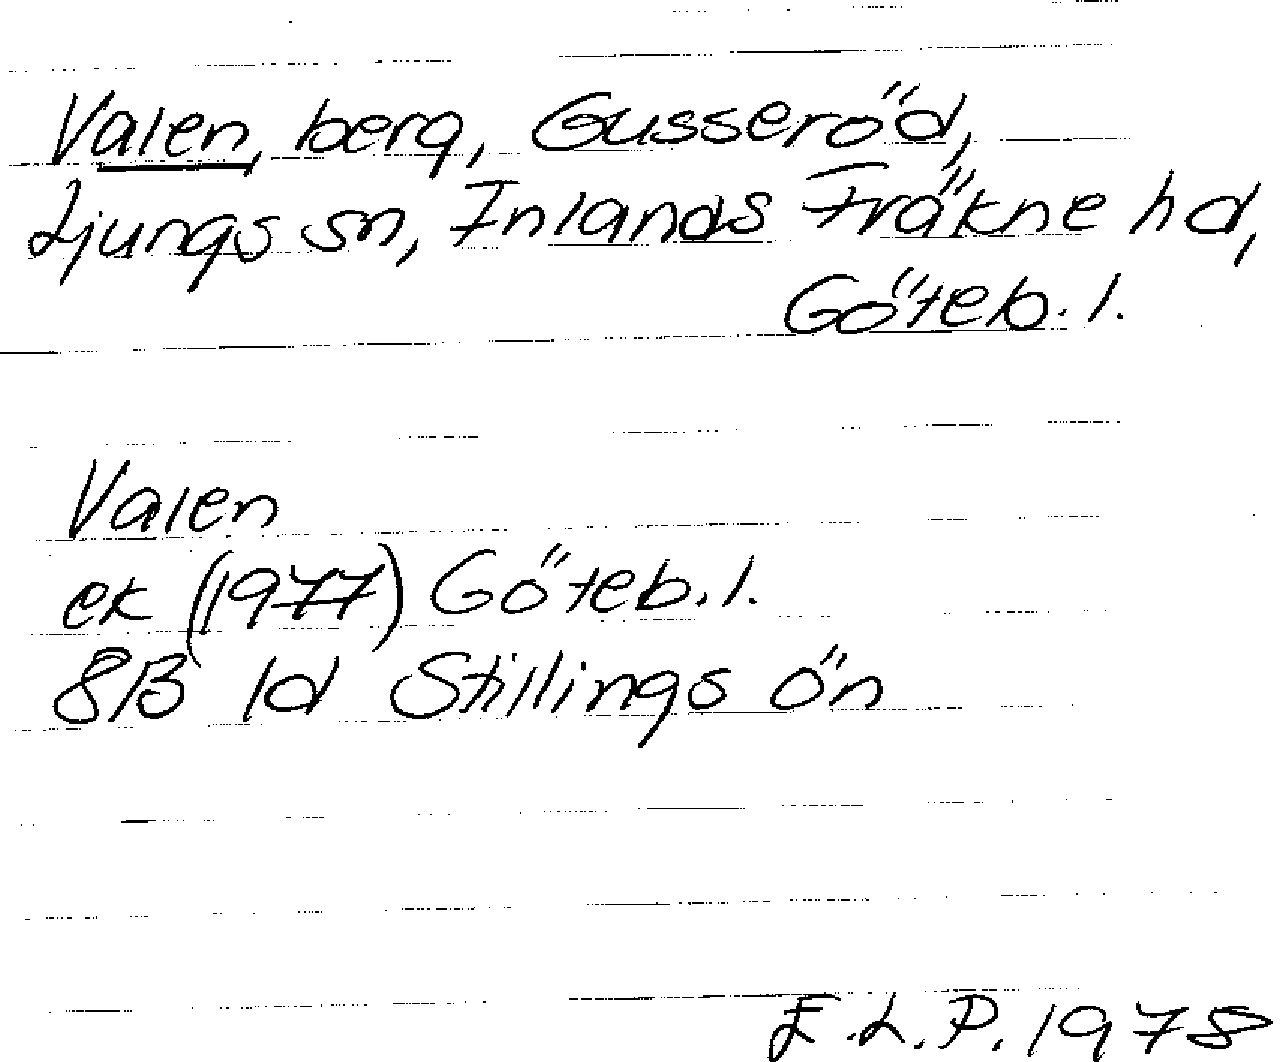 Valen, berg, Gusseröd,
Ljungs sn, Inlands Fräkne hd,
Göteb. l.
Valen
ek (1977) Göteb. l.
8B 1d Stillings ön
E.L.P. 1978